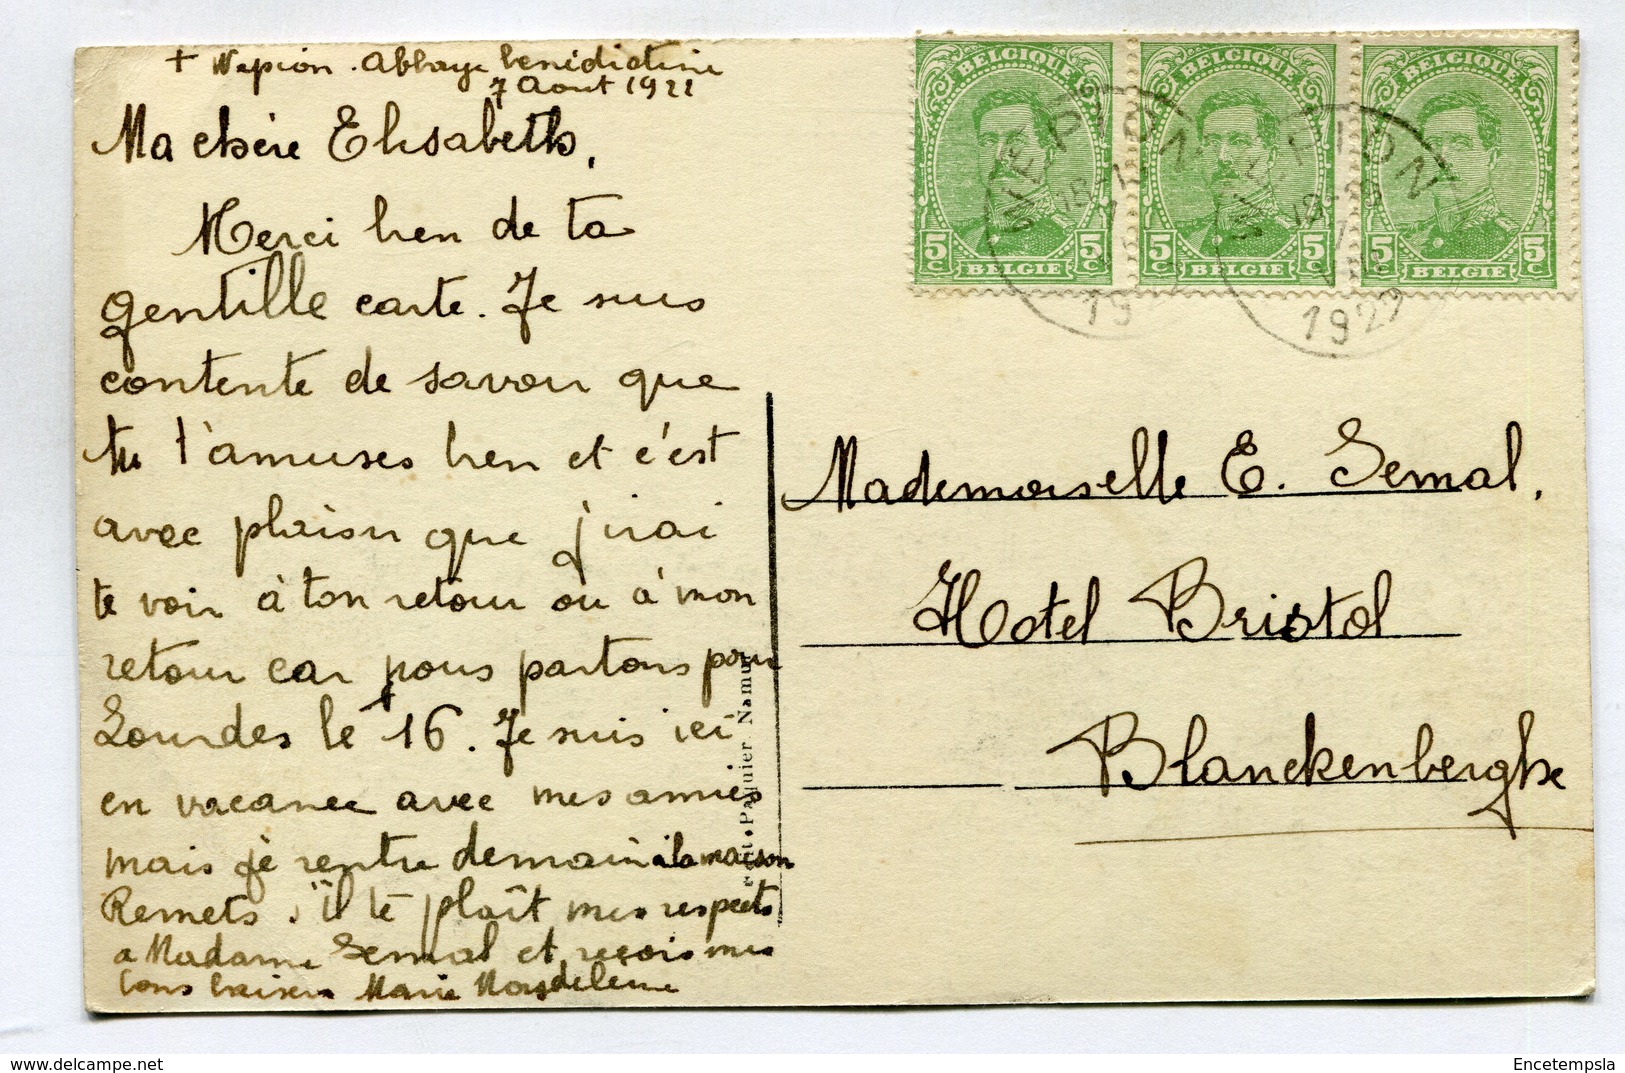 + Wepion. Abbaye benidictine
7 Aout 1922
Ma chère Elisabeth,
Merci bien de ta
gentille carte. Je suis
contente de savoir que
tu t'amuses bien et c'est
avec plaisir que j'irai
te voir à ton retour ou à mon
retour car nous partons pour
Lourdes le 16. Je suis ici
en vacance avec mes amies
mais je rentre demain à la maison
Remets s'il te plaît mes respects
a Madame Semal et reçois mes
bons baisers Marie Magdeleine
Papuier Namur
BELGIQUE
5c 5c
BELGIE
BELGIQUE
5c 5c
BELGIE
BELGIQUE
5c 5c
BELGIE
WEPION
18-19
19
WEPION
18-19
1922
Mademoiselle E. Semal.
Hotel Bristol
Blanckenberghe
Encetempsla